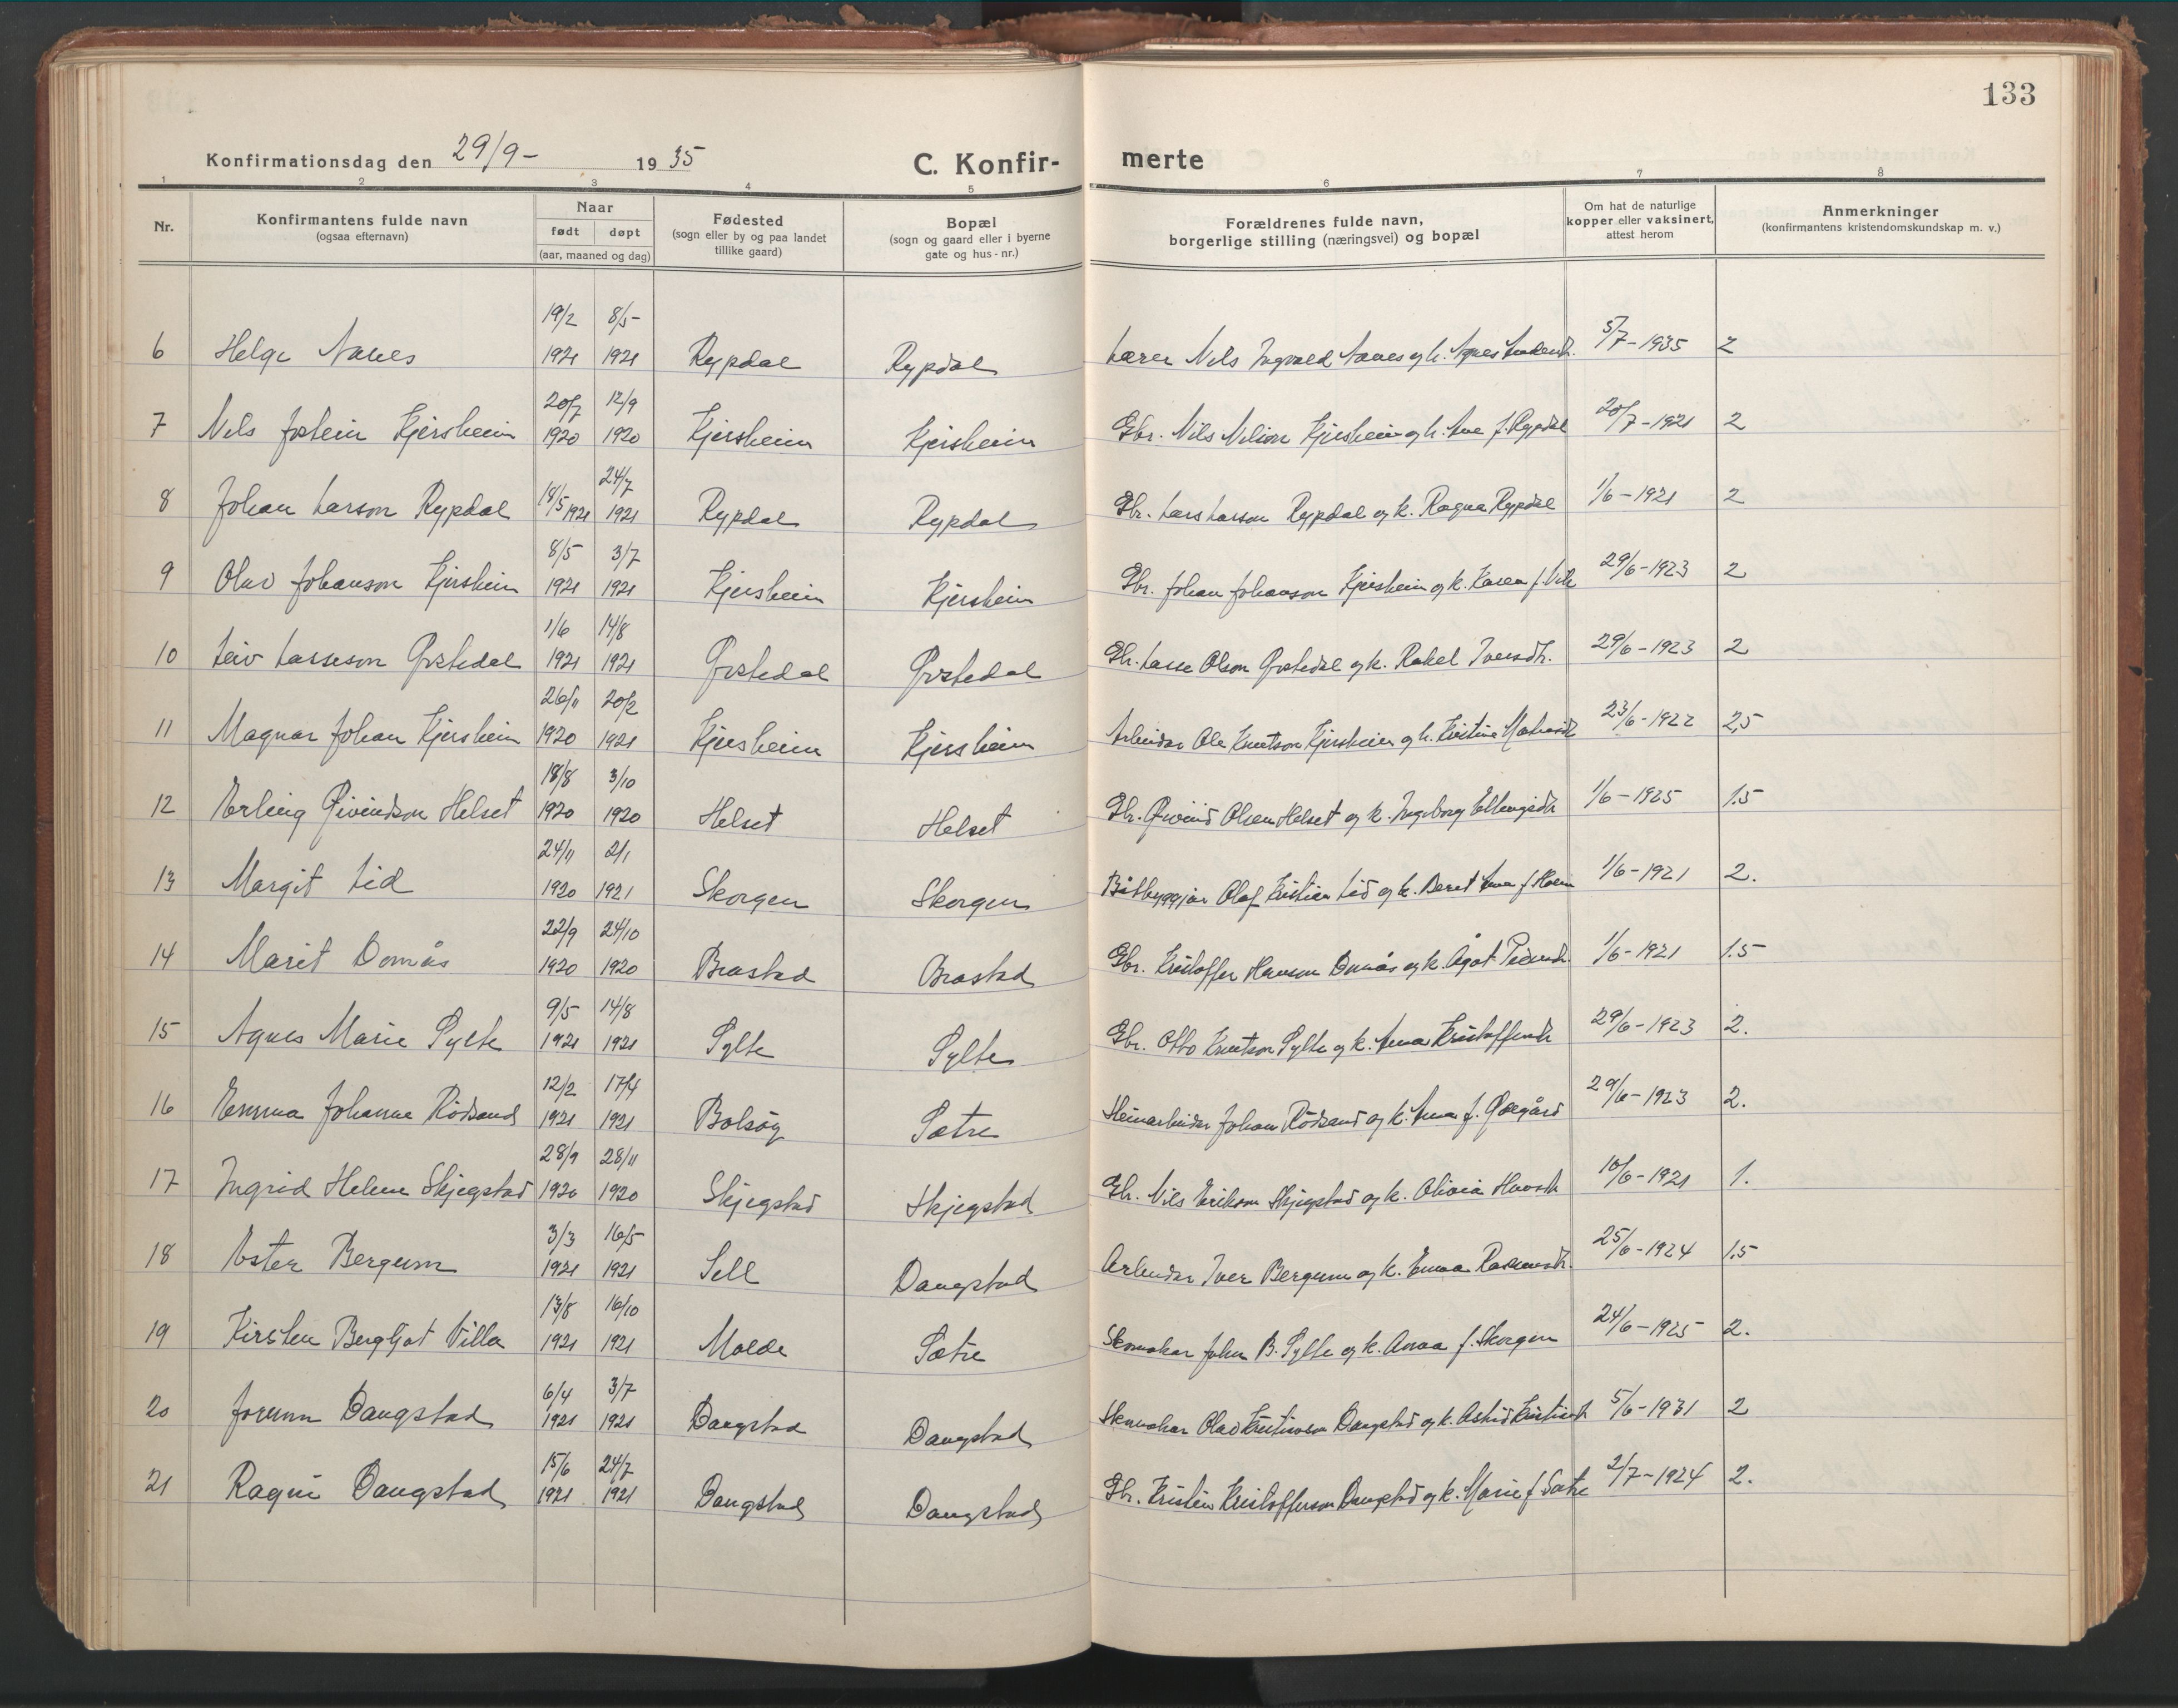 133
Konfirmationsdag den 29/9- 1935 C. Konfir- merte
1 2 3 4 5 6 7 8
Nr. Konfirmantens fulde navn (ogsaa efternavn) Naar født døpt (aar, maaned og dag) Fødested (sogn eller by og paa landet tillike gaard) Bopæl (sogn og gaard eller i byerne gate og hus-nr.) Forældrenes fulde navn, borgerlige stilling (næringsvei) og bopæl Om hat de naturlige kopper eller vaksinert, attest herom Anmerkninger (konfirmantens kristendomskundskap m. v.)
6 Helge 19/2 1921 8/5- 1921 Rypdal Rypdal Lærer Nils Ingvald og k. Agnes 5/7-1935 2
7 Nils Jostein Kjersheim 20/7 1920 12/9 1920 Kjersheim Kjersheim Gbr. Nils Nilson Kjersheim og k. Ane f. Rypdal 20/7-1921 2
8 Johan Larson Rypdal 18/5 1921 24/7 1921 Rypdal Rypdal Gbr. Lars Larson Rypdal og k. Ragna Rypdal 1/6-1921 2
9 Olav Johanson Kjersheim 8/5 1921 3/7 1921 Kjersheim Kjersheim Gbr. Johan Johanson Kjersheim og k. Karen f. Vik 29/6-1923 2
10 Leiv Lasseson Øvstedal 1/6 1921 14/8 1921 Øvstedal Øvstedal Gbr. Lasse Olson Øvstedal og k. Rakel Iversdtr. 29/6-1923 2
11 Magnar Johan Kjersheim 26/11 1920 20/2 1921 Kjersheim Kjersheim Arbeidar Ole Knutson Kjersheim og k. Kristine 23/6-1922 2,5
12 Erling Øivindson Helset 18/8 1920 3/10 1920 Helset Helset Gbr. Øivind Olsen Helset og k. Ingeborg 1/6-1925 1.5
13 Margit Lid 24/11 1920 2/1 1921 Skorgen Skorgen Båtbyggjar Olaf Kristian Lid og k. Beret Ane f. 1/6-1921 2.
14 Marit Domås 22/9 1920 24/10 1920 Brastad Brastad Gbr. Kristoffer Hanson Domås og k. Ågot 1/6-1921 1.5
15 Agnes Marie Sylte 9/5 1921 14/8 1921 Sylte Sylte Gbr. Otto Knutson Sylte og k. Anna Kristoffersdtr 29/6-1923 2.
16 Emma Johanne Rödsand 12/2 1921 17/4 1921 Bolsöy Sætre Steinarbeidar Johan Rödsand og k. Anna f. 29/6-1923 2.
17 Ingrid Helene Skjegstad 28/9 1920 28/11 1920 Skjegstad Skjegstad Gbr. Nils Erikson Skjegstad og k. Olivia 10/6-1921 1.
18 Ester Bergum 3/3 1921 16/5 1921 Sell Daugstad Arbeidar Iver Bergum og k. Emma Rasmusdtr. 25/6-1924 1.5
19 Kirsten Bergljot Villa 13/8 1921 16/10 1921 Molde Sætre Skomakar Johan B. Sylte og k. Anna f. Skorgen 24/6-1925 2.
20 Jorunn Daugstad 6/4 1921 3/7 1921 Daugstad Daugstad Skomakar Olav Kristinson Daugstad og k. Astrid 5/6-1931 2
21 Ragni Daugstad 15/6 1921 24/7 1921 Daugstad Daugstad Gbr. Kristen Kristofferson Daugstad og k. Marie f. Sætre 2/7-1924 2.